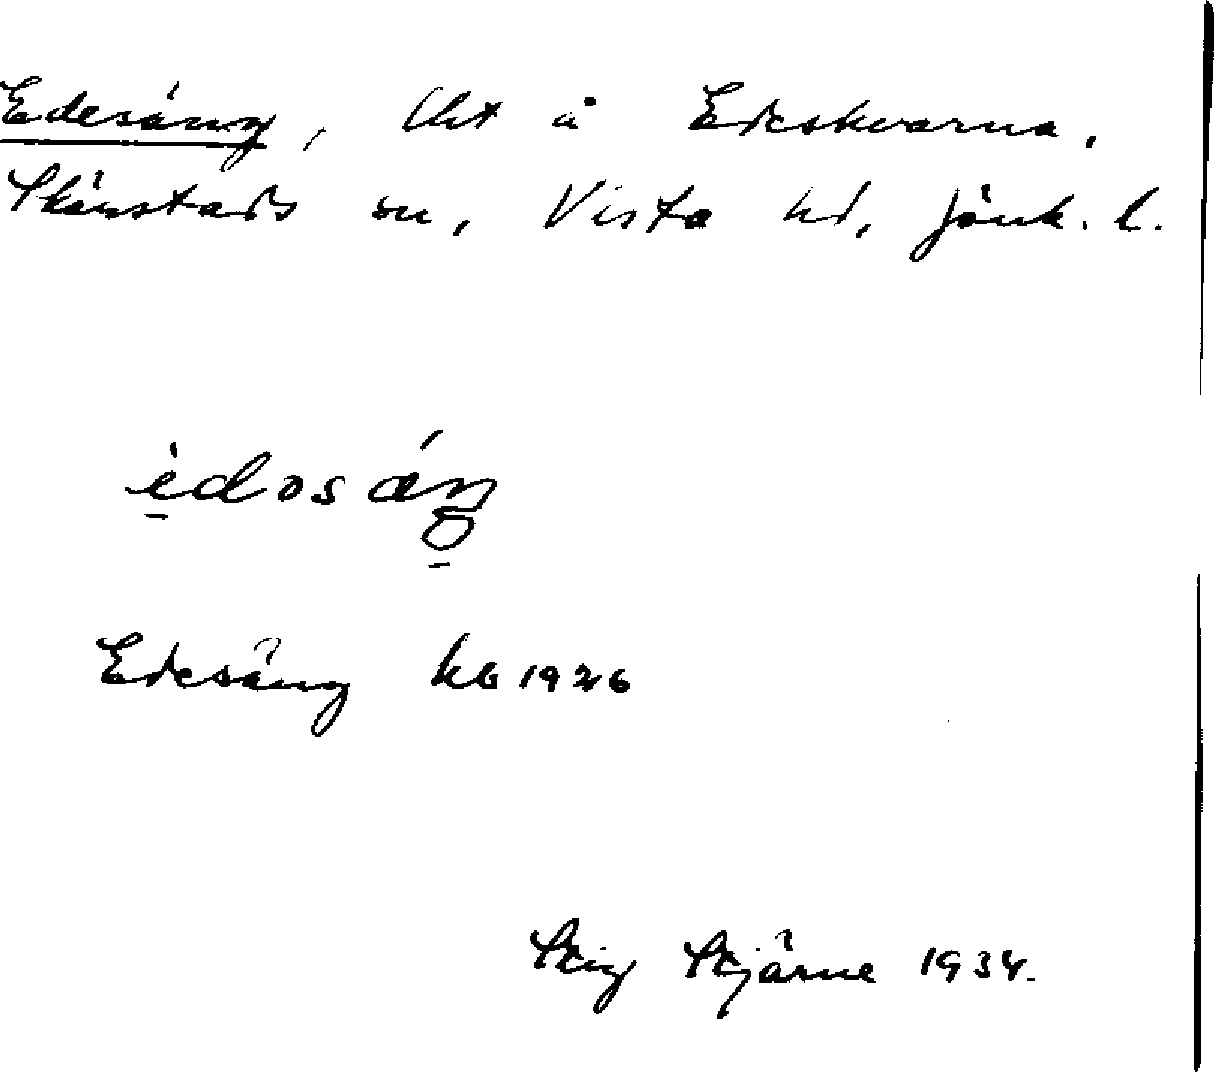 Edesäng, lht å Edeskvarna,
Skärstads sn, Vista hd, Jönk. l.
Edesäng kb 1926
Stig Stjärne 1934.